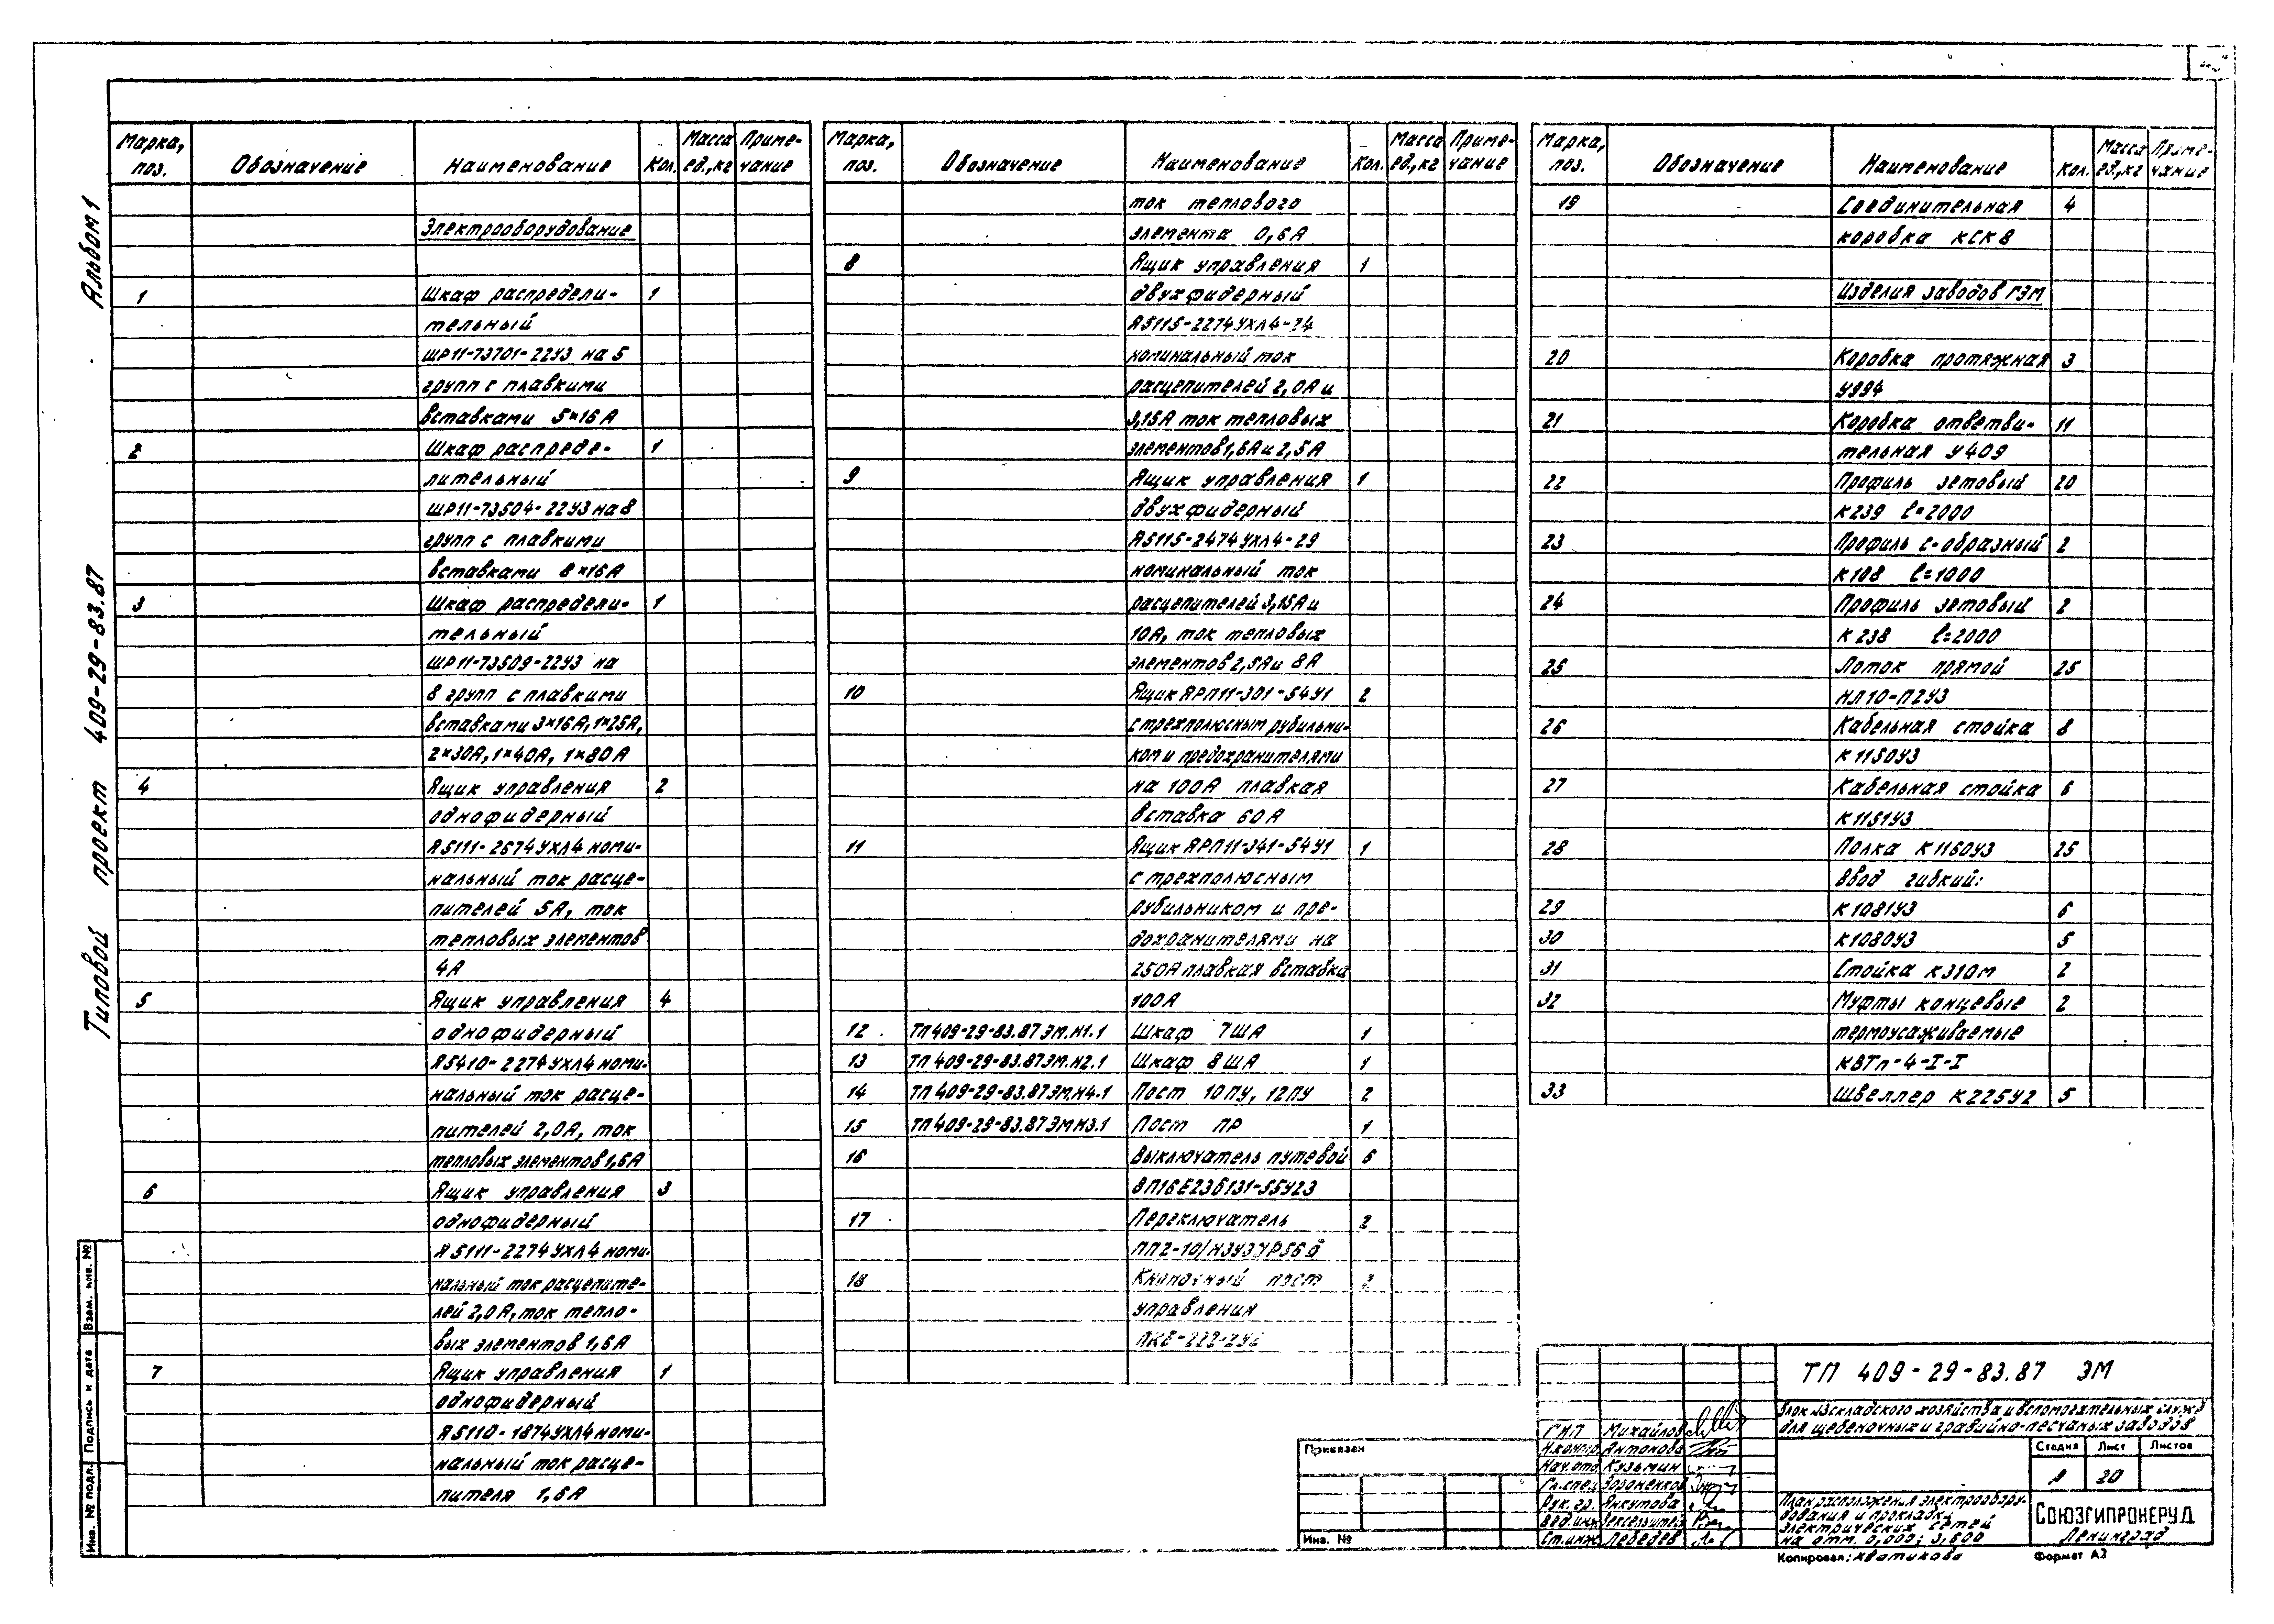 Альбом 1
Типовой проект 409-29-83.87
Марка, поз. Обозначение Наименование Кол. Масса ед., кг Приме-чание
Электрооборудование
1 Шкаф распредели- 1
тельный
ШР11-73701-22У3 на 5
групп с плавкими
вставками 5×16А
2 Шкаф распреде- 1
лительный
ШР11-73504-22У3 на 8
групп с плавкими
вставками 8×16А
3 Шкаф распредели- 1
тельный
ШР11-73509-22У3 на
8 групп с плавкими
вставками 3×16А, 1×25А,
2×30А, 1×40А, 1×80А
4 Ящик управления 2
однофидерный
Я5111-2674УХЛ4 номи-
нальный ток расце-
пителей 5А, ток
тепловых элементов
4А
5 Ящик управления 4
однофидерный
Я5410-2274УХЛ4 номи-
нальный ток расце-
пителей 2,0А, ток
тепловых элементов 1,6А
6 Ящик управления 3
однофидерный
Я5111-2274УХЛ4 номи-
нальный ток расцепите-
лей 2,0А, ток тепло-
вых элементов 1,6А
7 Ящик управления 1
однофидерный
Я5110-1874УХЛ4 номи-
нальный ток расце-
пителя 1,6А
Марка, поз. Обозначение Наименование Кол. Масса ед., кг Приме-чание
ток теплового
элемента 0,6А
8 Ящик управления 1
двухфидерный
Я5115-2274УХЛ4-24
номинальный ток
расцепителей 2,0А и
3,15А ток тепловых
элементов 1,6А и 2,5А
9 Ящик управления 1
двухфидерный
Я5115-2474УХЛ4-29
номинальный ток
расцепителей 3,15А и
10А, ток тепловых
элементов 2,5А и 8А
10 Ящик ЯРП11-301-54У1 2
с трехполюсным рубильни-
ком и предохранителями
на 100А плавкая
вставка 60А
11 Ящик ЯРП11-341-54У1 1
с трехполюсным
рубильником и пре-
дохранителями на
250А плавкая вставка
100А
12 ТП409-29-83.87 ЭМ.И1.1 Шкаф 7ША 1
13 ТП 409-29-83.87ЭМ.И2.1 Шкаф 8ША 1
14 ТП 409-29-83.87ЭМ.И4.1 Пост 10ПУ, 12ПУ 2
15 ТП409-29-83.87ЭМИ3.1 Пост ПР 1
16 Выключатель путевой 6
ВП16Е23Б131-55У23
17 Переключатель 2
18 Кнопочный пост
управления
Марка, поз. Обозначение Наименование Кол. Масса ед., кг Приме-чание
19 Соединительная 4
коробка КСК8
Изделия заводов ГЭМ
20 Коробка протяжная 3
У994
21 Коробка ответви- 11
тельная У409
22 Профиль зетовый 20
К239 ℓ=2000
23 Профиль с-образный 2
К108 ℓ=1000
24 Профиль зетовый 2
К238 ℓ=2000
25 Лоток прямой 25
НЛ10-П2У3
26 Кабельная стойка 8
К1150У3
27 Кабельная стойка 6
К1151У3
28 Полка К1160У3 25
Ввод гибкий:
29 К1081У3 6
30 К1080У3 5
31 Стойка К310М 2
32 Муфты концевые 2
термоусаживаемые
КВТп-4-I-I
33 Швеллер К225У2 5
Взам. инв. №
Подпись и дата
Инв. № подл.
Привязан
Инв. №
ТП 409-29-83.87 ЭМ
Блок складского хозяйства и вспомогательных служб
для щебеночных и гравийно-песчаных заводов
ГИП Михайлов
Н.контр. Антонова
Нач.отд Кузьмин
Гл.спец
Рук. гр. Янкутова
Вед.инж
Ст.инж. Лебедев
Стадия Лист Листов
Р 20
План расположения электрообору-
дования и прокладки
электрических сетей
на отм. 0,000; 3,600
СОЮЗГИПРОНЕРУД
Ленинград
Копировал: Хватикова Формат А2